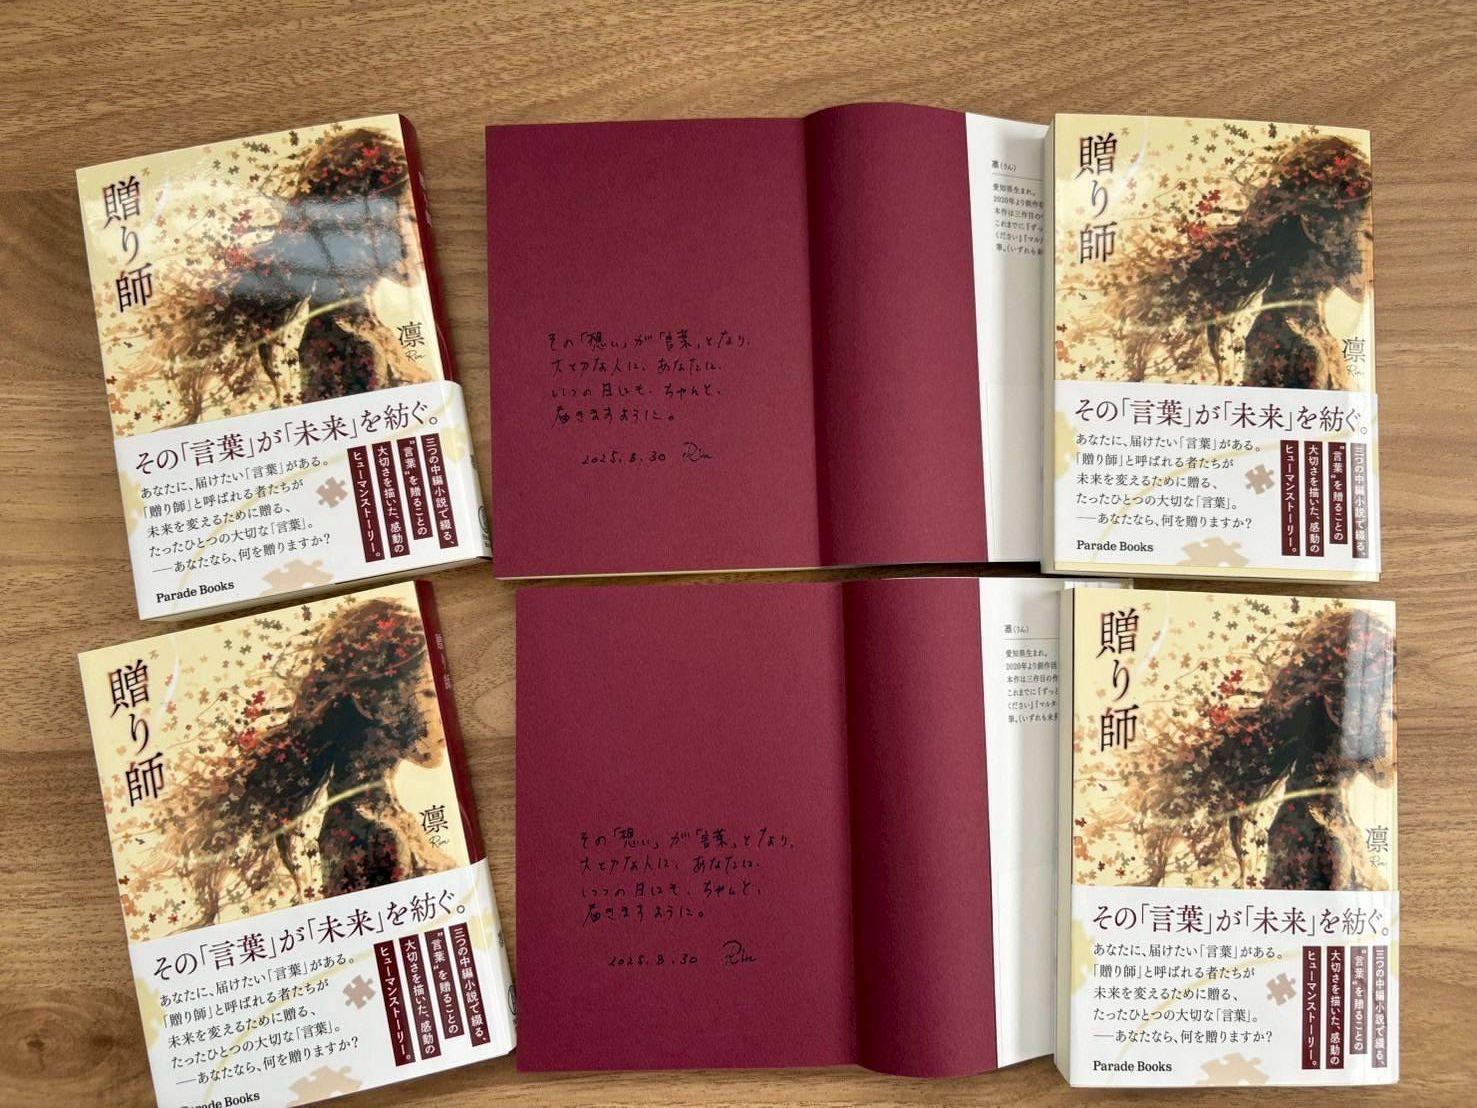 贈り師
凛
Rin
その「言葉」が「未来」を紡ぐ。
あなたに、届けたい「言葉」がある。
「贈り師」と呼ばれる者たちが
未来を変えるために贈る、
たったひとつの大切な「言葉」。
──あなたなら、何を贈りますか?
三つの中編小説で綴る、
"言葉"を贈ることの
大切さを描いた、感動の
ヒューマンストーリー。
Parade Books
その「想い」が「言葉」となり、
大切な人に、あなたに、
いつの日にも、ちゃんと、
届きますように。
2025.8.30 Rin
凛(りん)
愛知県生まれ。
2020年より創作
本作は三作目の
これまでに『ずっ
ください』『マルタ
筆。(いずれも
贈り師
凛
Rin
その「言葉」が「未来」を紡ぐ。
あなたに、届けたい「言葉」がある。
「贈り師」と呼ばれる者たちが
未来を変えるために贈る、
たったひとつの大切な「言葉」。
──あなたなら、何を贈りますか?
三つの中編小説で綴る、
"言葉"を贈ることの
大切さを描いた、感動の
ヒューマンストーリー。
Parade Books
贈り師
贈り師
凛
Rin
その「言葉」が「未来」を紡ぐ。
あなたに、届けたい「言葉」がある。
「贈り師」と呼ばれる者たちが
未来を変えるために贈る、
たったひとつの大切な「言葉」。
──あなたなら、何を贈りますか?
三つの中編小説で綴る、
"言葉"を贈ることの
大切さを描いた、感動の
ヒューマンストーリー。
Parade Books
その「想い」が「言葉」となり、
大切な人に、あなたに、
いつの日にも、ちゃんと、
届きますように。
2025.8.30 Rin
凛(りん)
愛知県生まれ。
2020年より創作活
本作は三作目の作
これまでに『ずっと
ください』『マルタ
筆。(いずれも
贈り師
凛
Rin
その「言葉」が「未来」を紡ぐ。
あなたに、届けたい「言葉」がある。
「贈り師」と呼ばれる者たちが
未来を変えるために贈る、
たったひとつの大切な「言葉」。
──あなたなら、何を贈りますか?
三つの中編小説で綴る、
"言葉"を贈ることの
大切さを描いた、感動の
ヒューマンストーリー。
Parade Books